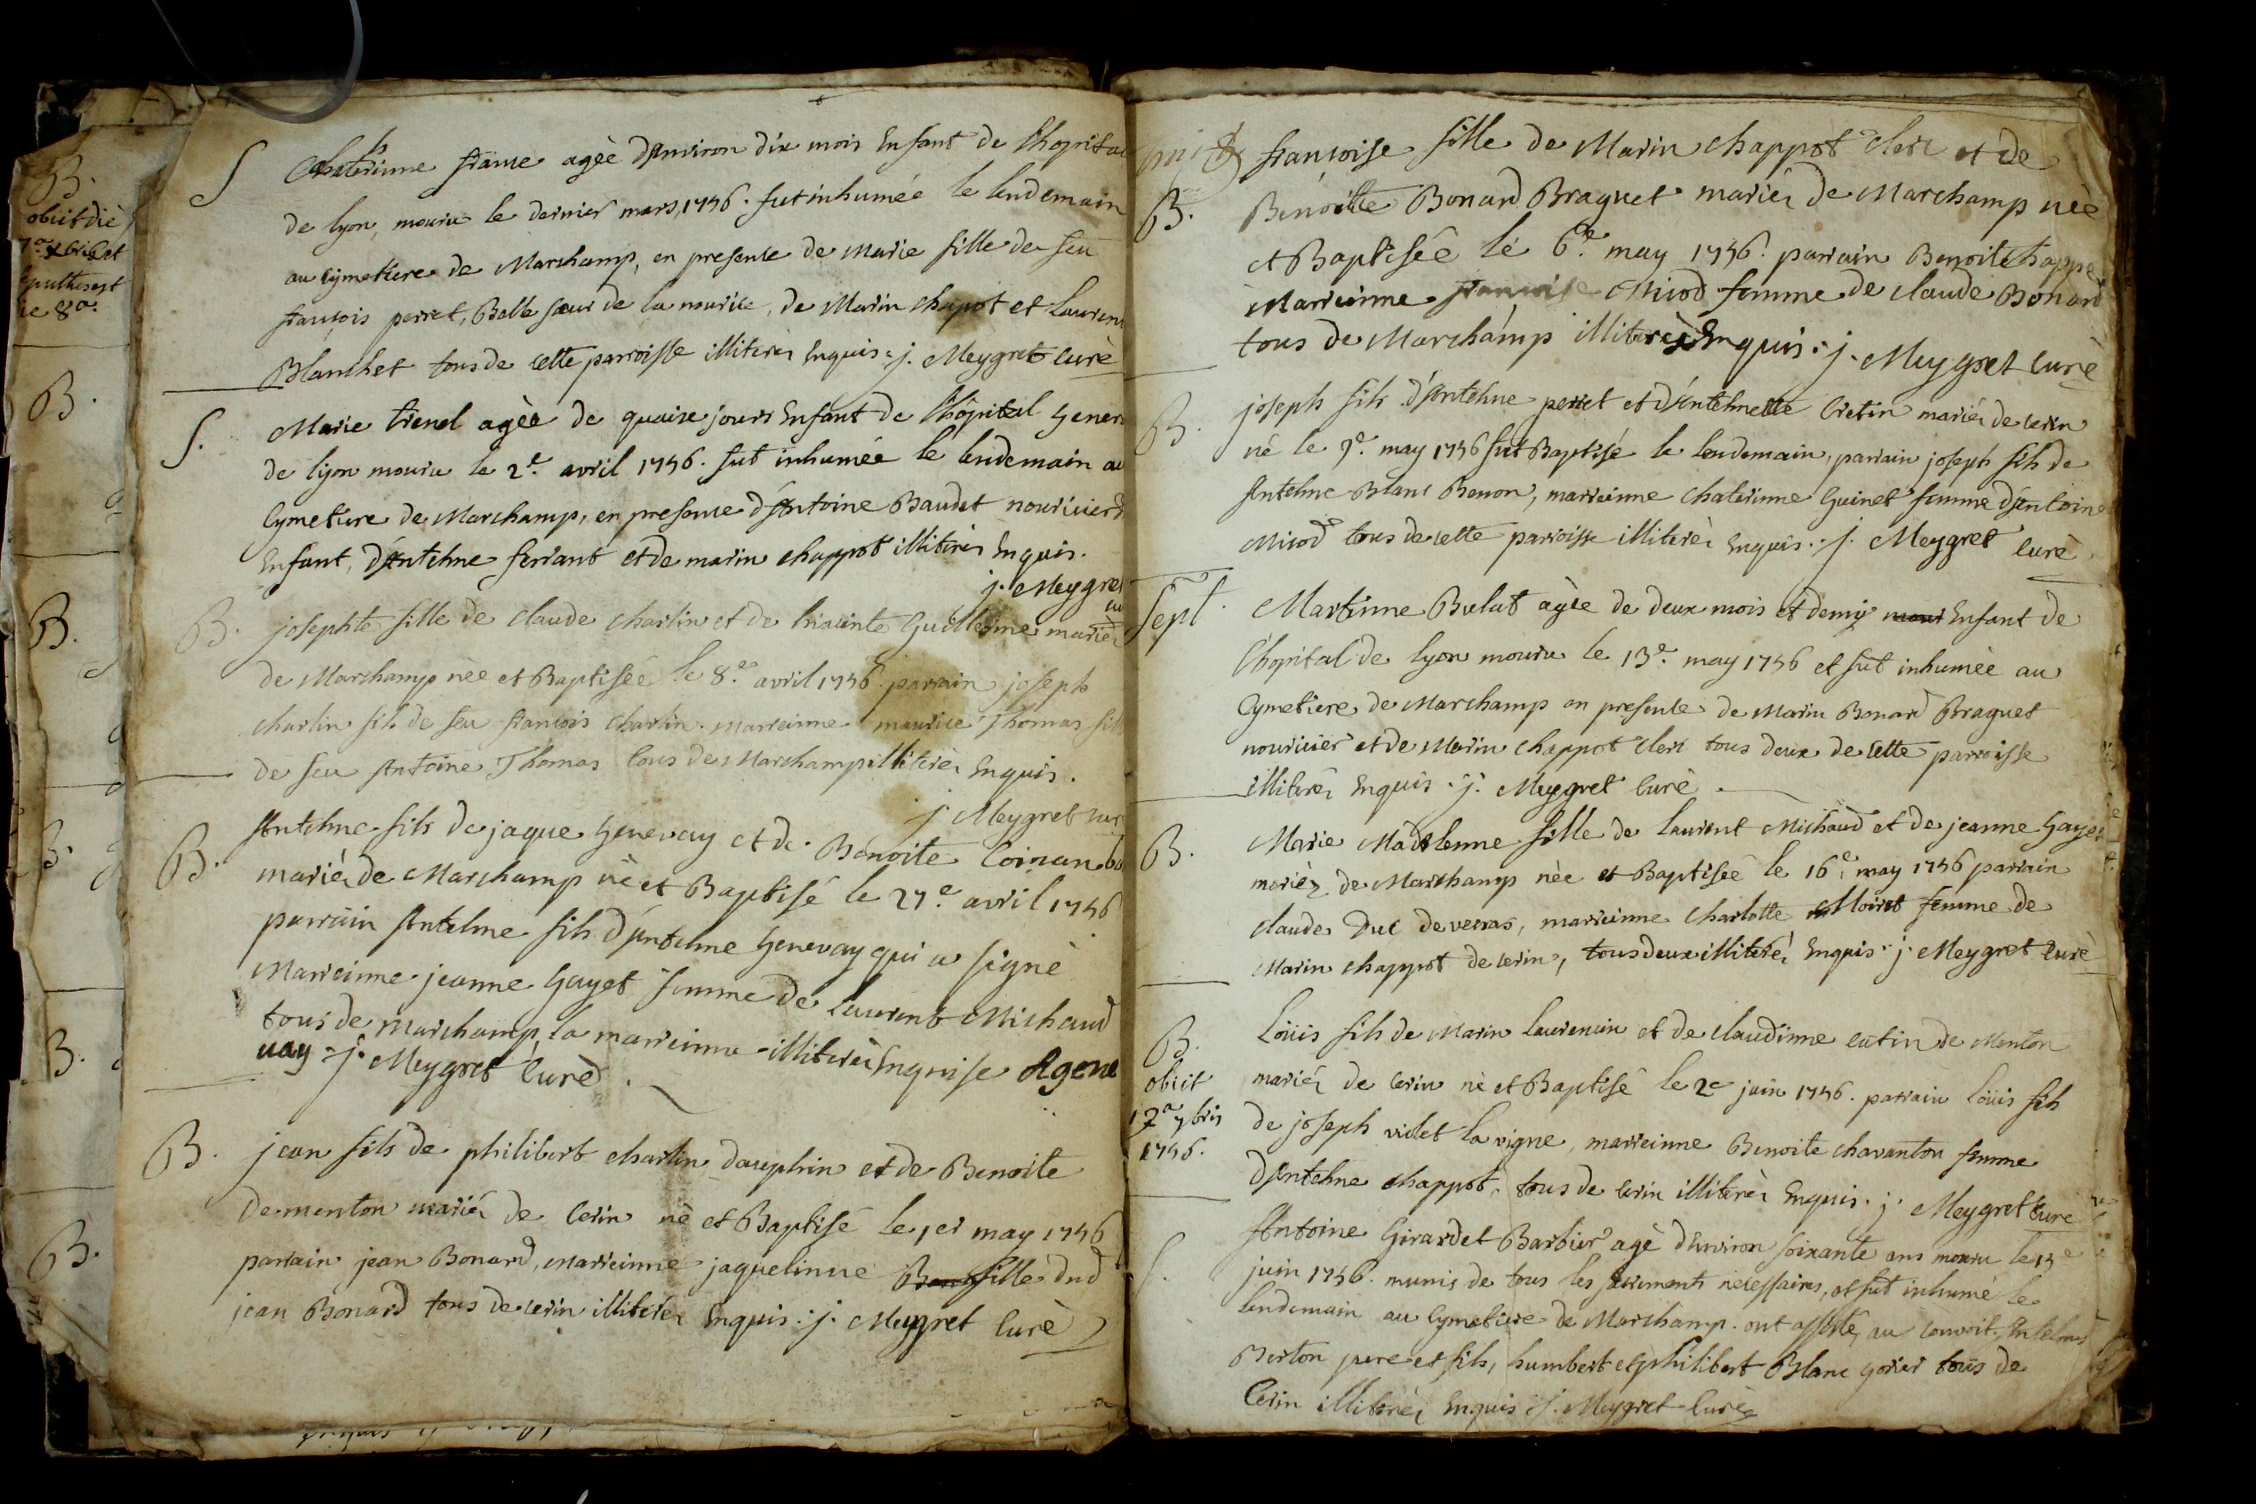 B.
obiit die
7a xbris et
sepult. est
die 8a.
B.
B.
B.
B.
B.
S
Chaterinne france agèe d'Environ dix mois Enfant de l'hopital
de lyon, mouru le dernier mars 1756. fut inhumée le lendemain
au cymetiere de Marchamp, en presence de Marie fille de feu
françois perret, Belle sœur de la nourice, de Marin chapot et Laurent
Blanchet tous de cette parroisse illiterés Enquis. j. Meygret curè
S.
Marie trenel agèe de quinze jours Enfant de l'hôpital Gener
de lyon mouru le 2e. avril 1756. fut inhumée le lendemain au
Cymetiere de Marchamp, en presence d'Antoine Baudet nouricier d
Enfant, d'Antelme ferrant et de marin chappot illiterés Enquis.
j. Meygret
cu
B.
josephte fille de claude charlin et de hiacinte Guillerme mariés
de Marchamp nèe et Baptisée le 8e. avril 1756. parrain joseph
charlin fils de feu francois charlin. marreinne maurice Thomas fill
de feu Antoine Thomas tous de Marchamp illiterés Enquis.
j. Meygret cur
B.
Antelme fils de jaque Genevay et de Benoite
mariés de Marchamp nè et Baptisé le 27e. avril 1756
parrain Antelme fils d'Antelme Genevay qui a signè
Marreinne jeanne Gayet femme de laurent Michaud
tous de marchamp, la marreinne illiterée Enquise Agene
vay. j. Meygret Curè.
B.
jean fils de philibert charlin dauphin et de Benoite
dementon mariés de Cerin nè et Baptisé le 1er may 1756
parrain jean Bonard, marreinne jaquelinne fille dud
jean Bonard tous de cerin illiterés Enquis. j. Meygret Curè
B.
francoise fille de Marin chappot clerc et de
Benoitte Bonard Braguet mariés de Marchamp nèe
et Baptisèe le 6e. may 1756. parrain Benoit chappo
Marreinne francoise Micod femme de claude Bonard
tous de Marchamp illiterés Enquis. j. Meygret Curè
B.
joseph fils d'Antelme perret et d'Antelmette Cretin mariés de cerin
nè le 9e. may 1756 fut Baptisé le lendemain, parrain joseph fils de
Antelme Blanc Benon, marreinne chaterinne Guinet femme d'Antoine
Micod tous de cette parroisse illiterés Enquis. j. Meygret Curè.
Sept.
Martinne Bulat agèe de deux mois et demy Enfant de
l'hopital de lyon mouru le 13e. may 1756 et fut inhumèe au
Cymetiere de Marchamp en presence de Marin Bonard Braguet
nouricier et de Marin chappot clerc tous deux de cette parroisse
illiterés Enquis. j. Meygret Curè.
B.
Marie Madelenne fille de laurent Michaud et de jeanne Gayet
mariés de Marchamp nèe et Baptisèe le 16e. may 1756 parrain
claude Duc de verras, marreinne charlotte Moiret femme de
Marin chappot de cerin, tous deux illiterés Enquis. j. Meygret Curè
B.
obiit
17a 7bris
1756.
Loüis fils de Marin laurencin et de claudinne catin de Menton
mariés de Cerin nè et Baptisé le 2e juin 1756. parrain loüis fils
de joseph violet la vigne, marreinne Benoite chavanton femme
d'Antelme chappot, tous de Cerin illiterés Enquis. j. Meygret Curè
S.
Antoine Girardet Barbier agè d'Environ soixante ans mouru le 13e
juin 1756. munis de tous les sacrements necessaires, et fut inhumé le
lendemain au Cymetiere de Marchamp. ont assisté au convoit, Antelme
Berton pere et fils, humbert et philibert Blanc gorier tous de
Cerin illiterés Enquis. j. Meygret Curè